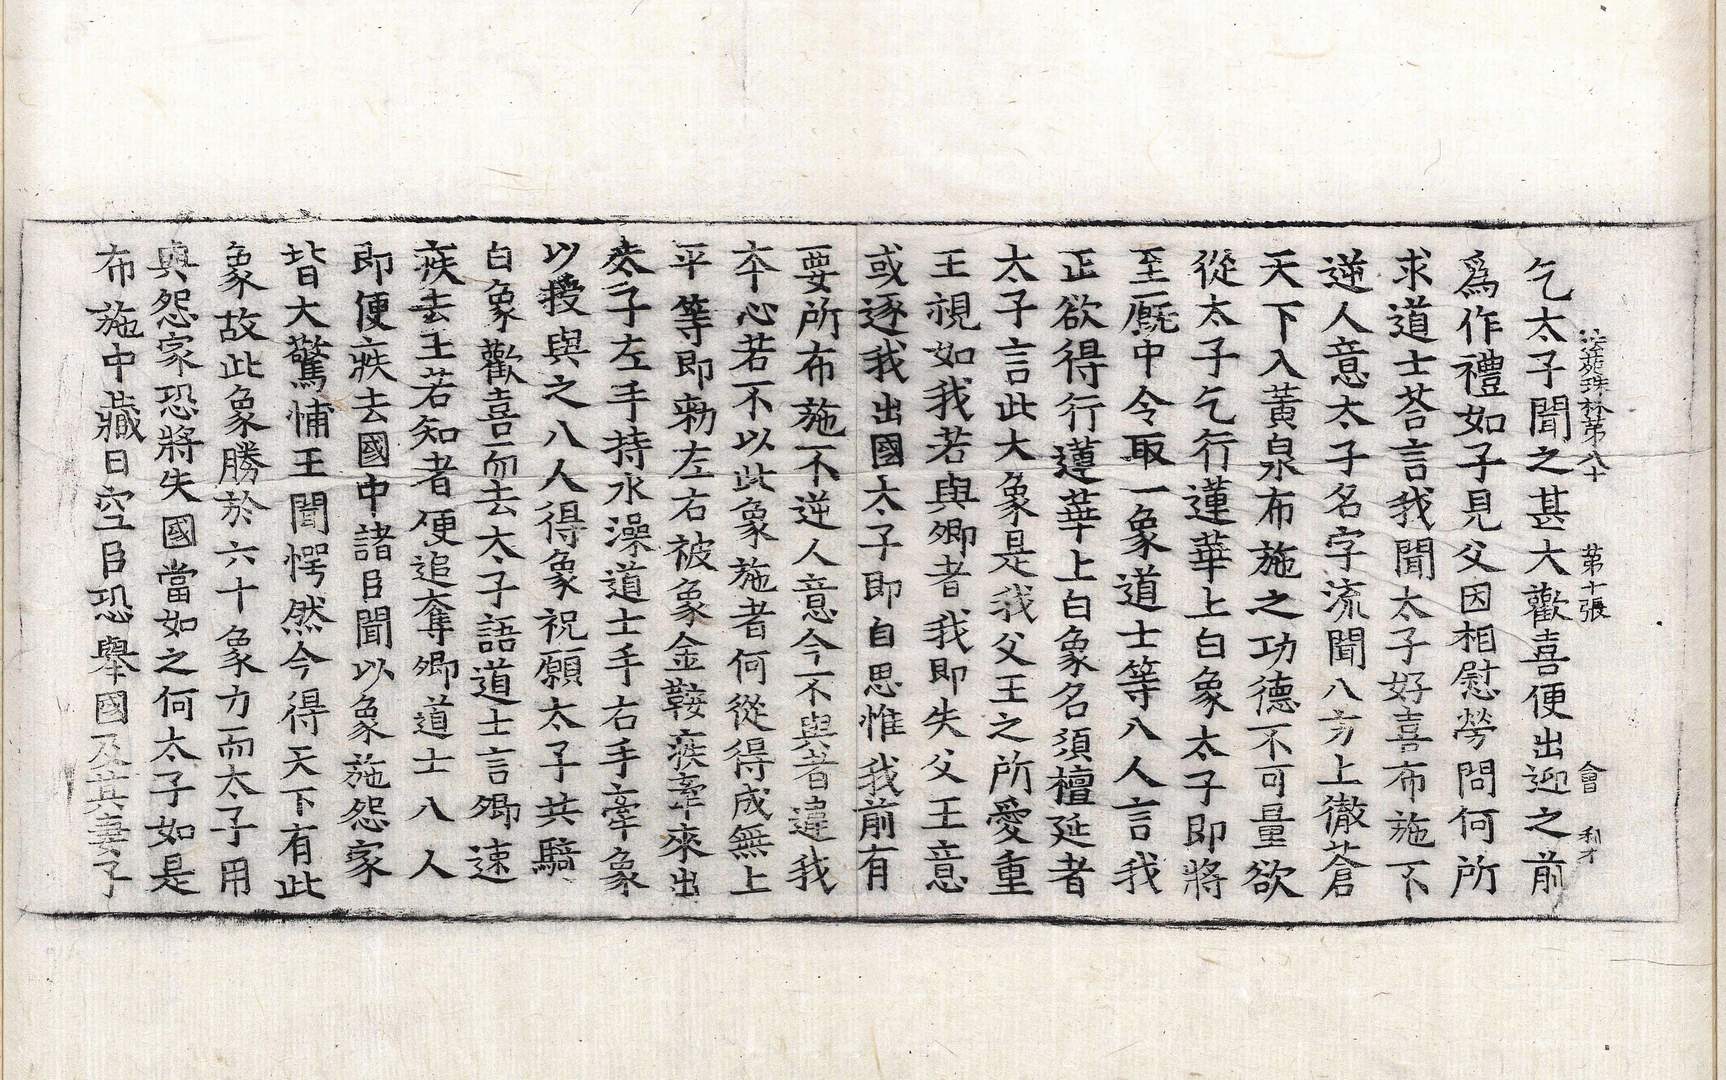 法苑珠林第八十 第十張 會 利才
乞太子聞之甚大歡喜便出迎之前
爲作禮如子見父因相慰勞問何所
求道士荅言我聞太子好喜布施不
逆人意太子名字流聞八方上徹蒼
天下入黃泉布施之功德不可量欲
從太子乞行蓮華上白象太子即將
至廐中令取一象道士等八人言我
正欲得行蓮華上白象名須檀延者
太子言此大象是我父王之所愛重
王視如我若與卿者我即失父王意
或逐我出國太子即自思惟我前有
要所布施不逆人意今不與者違我
夲心若不以此象施者何從得成無上
平等即勑左右被象金鞍疾牽來出
太子左手持水澡道士手右手牽象
以授與之八人得象祝願太子共騎
白象歡喜而去太子語道士言卿速
疾去王若知者便追奪卿道士八人
即便疾去國中諸臣聞以象施怨家
皆大驚怖王聞愕然今得天下有此
象故此象勝於六十象力而太子用
與怨家恐將失國當如之何太子如是
布施中藏日空臣恐舉國及其妻子